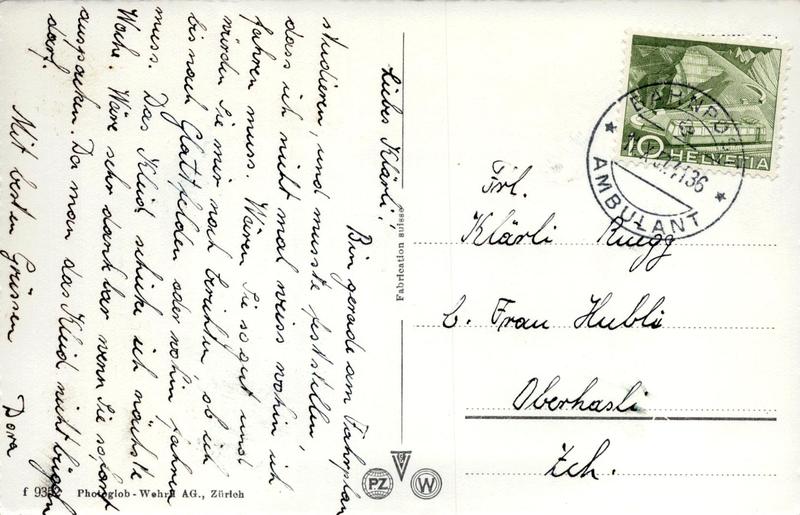 Liebes Klärli!
Bin gerade am Fahrplan
studieren, und musste feststellen,
dass ich nicht mal weiss wohin ich
fahren muss. Wären Sie so gut und
würden Sie mir noch berichten, ob ich
bis nach Glattfelden oder wohin fahren
muss. Das Kleid schicke ich nächste
Woche. Wäre sehr dankbar wenn Sie sofort
auspacken. Da man das Kleid nicht bügeln
darf.
Mit besten Grüssen
Dora
Fabrication suisse
HELVETIA
10
BAHNPOST
AMBULANT
Frl.
Klärli Ruegg
b. Frau Hubli
Oberhasli
Zch.
f 935
Photoglob-Wehrli AG., Zürich
PZ
W